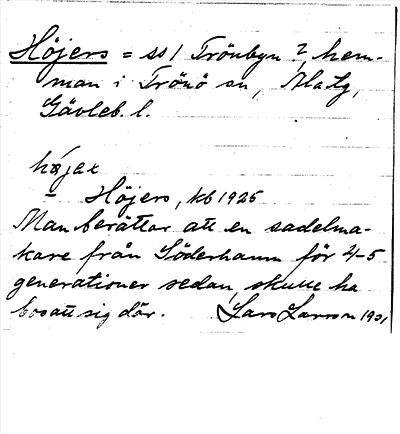 Höjers = ss/ Trönbyn 2, hem-
man i Trönö sn, Ala tg,
Gävleb. l.
höjax
Höjers, kb 1925
Man berättar att en sadelma-
kare från Söderhamn för 4-5
generationer sedan, skulle ha
bosatt sig där. Lars Larsson 1931